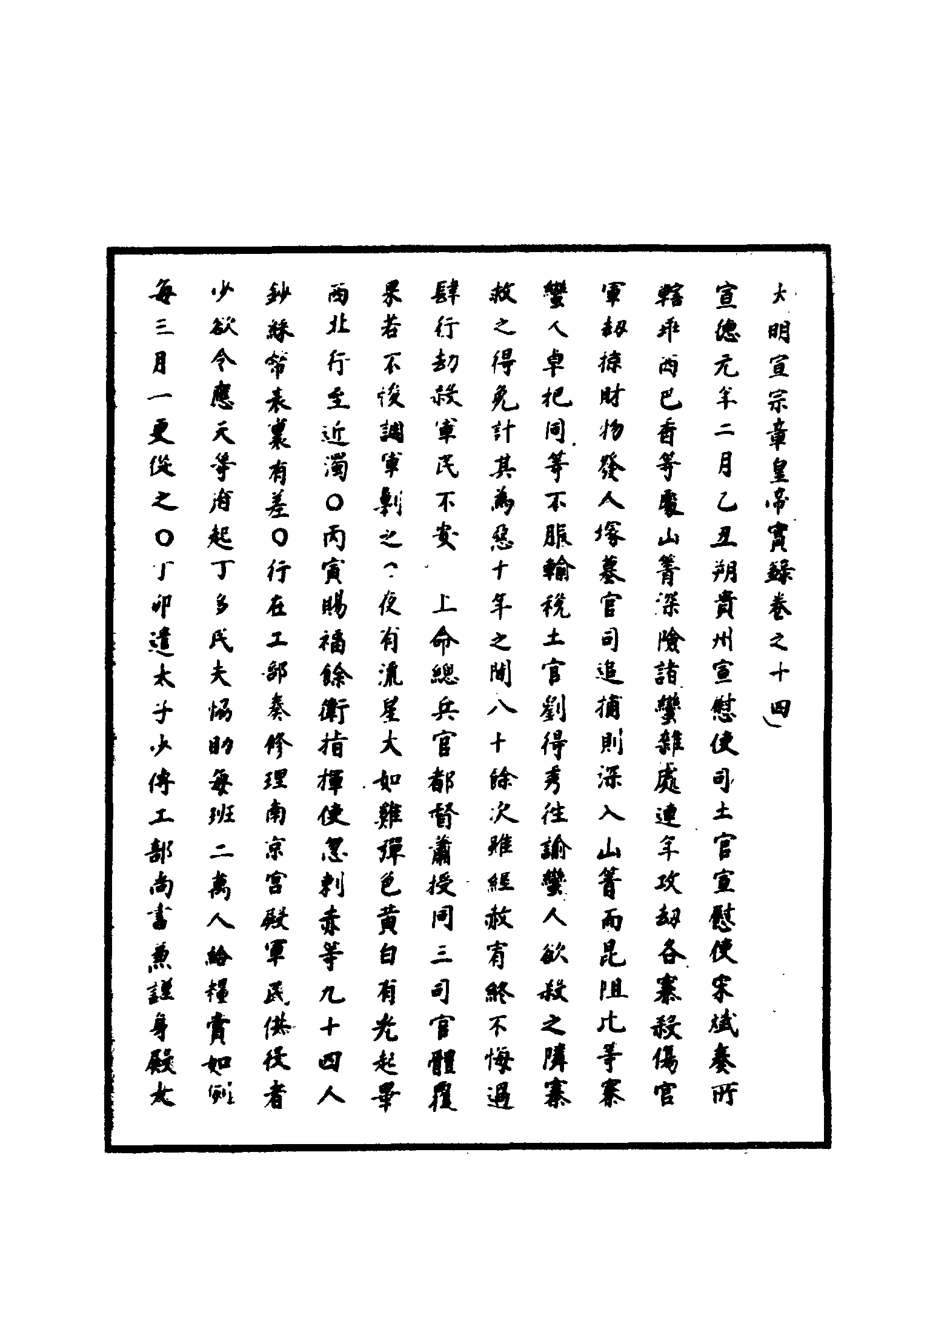 大明宣宗章皇帝實錄卷之十四
宣德元年二月乙丑朔貴州宣慰使司土官宣慰使宋斌奏所
轄乖西巴香等處山箐深險諸蠻雜處連年攻刼各寨殺傷官
軍刼掠財物發人塚墓官司追捕則深入山箐而昆阻比等寨
蠻人卓把同等不服輸稅土官劉得秀往諭蠻人欲殺之隣寨
救之得免計其為惡十年之間八十餘次雖經赦宥終不悔過
肆行劫殺軍民不安 上命總兵官都督蕭授同三司官體覆
果若不悛調軍剿之〇夜有流星大如雞彈色黄白有光起畢
西北行至近濁〇丙寅賜福餘衛指揮使忽剌赤等九十四人
鈔綵幣表裏有差〇行在工部奏修理南京宮殿軍民供役者
少欲令應天等府起丁多民夫協助每班二萬人給糧賞如例
每三月一更從之〇丁卯遣太子少傅工部尚書兼謹身殿大